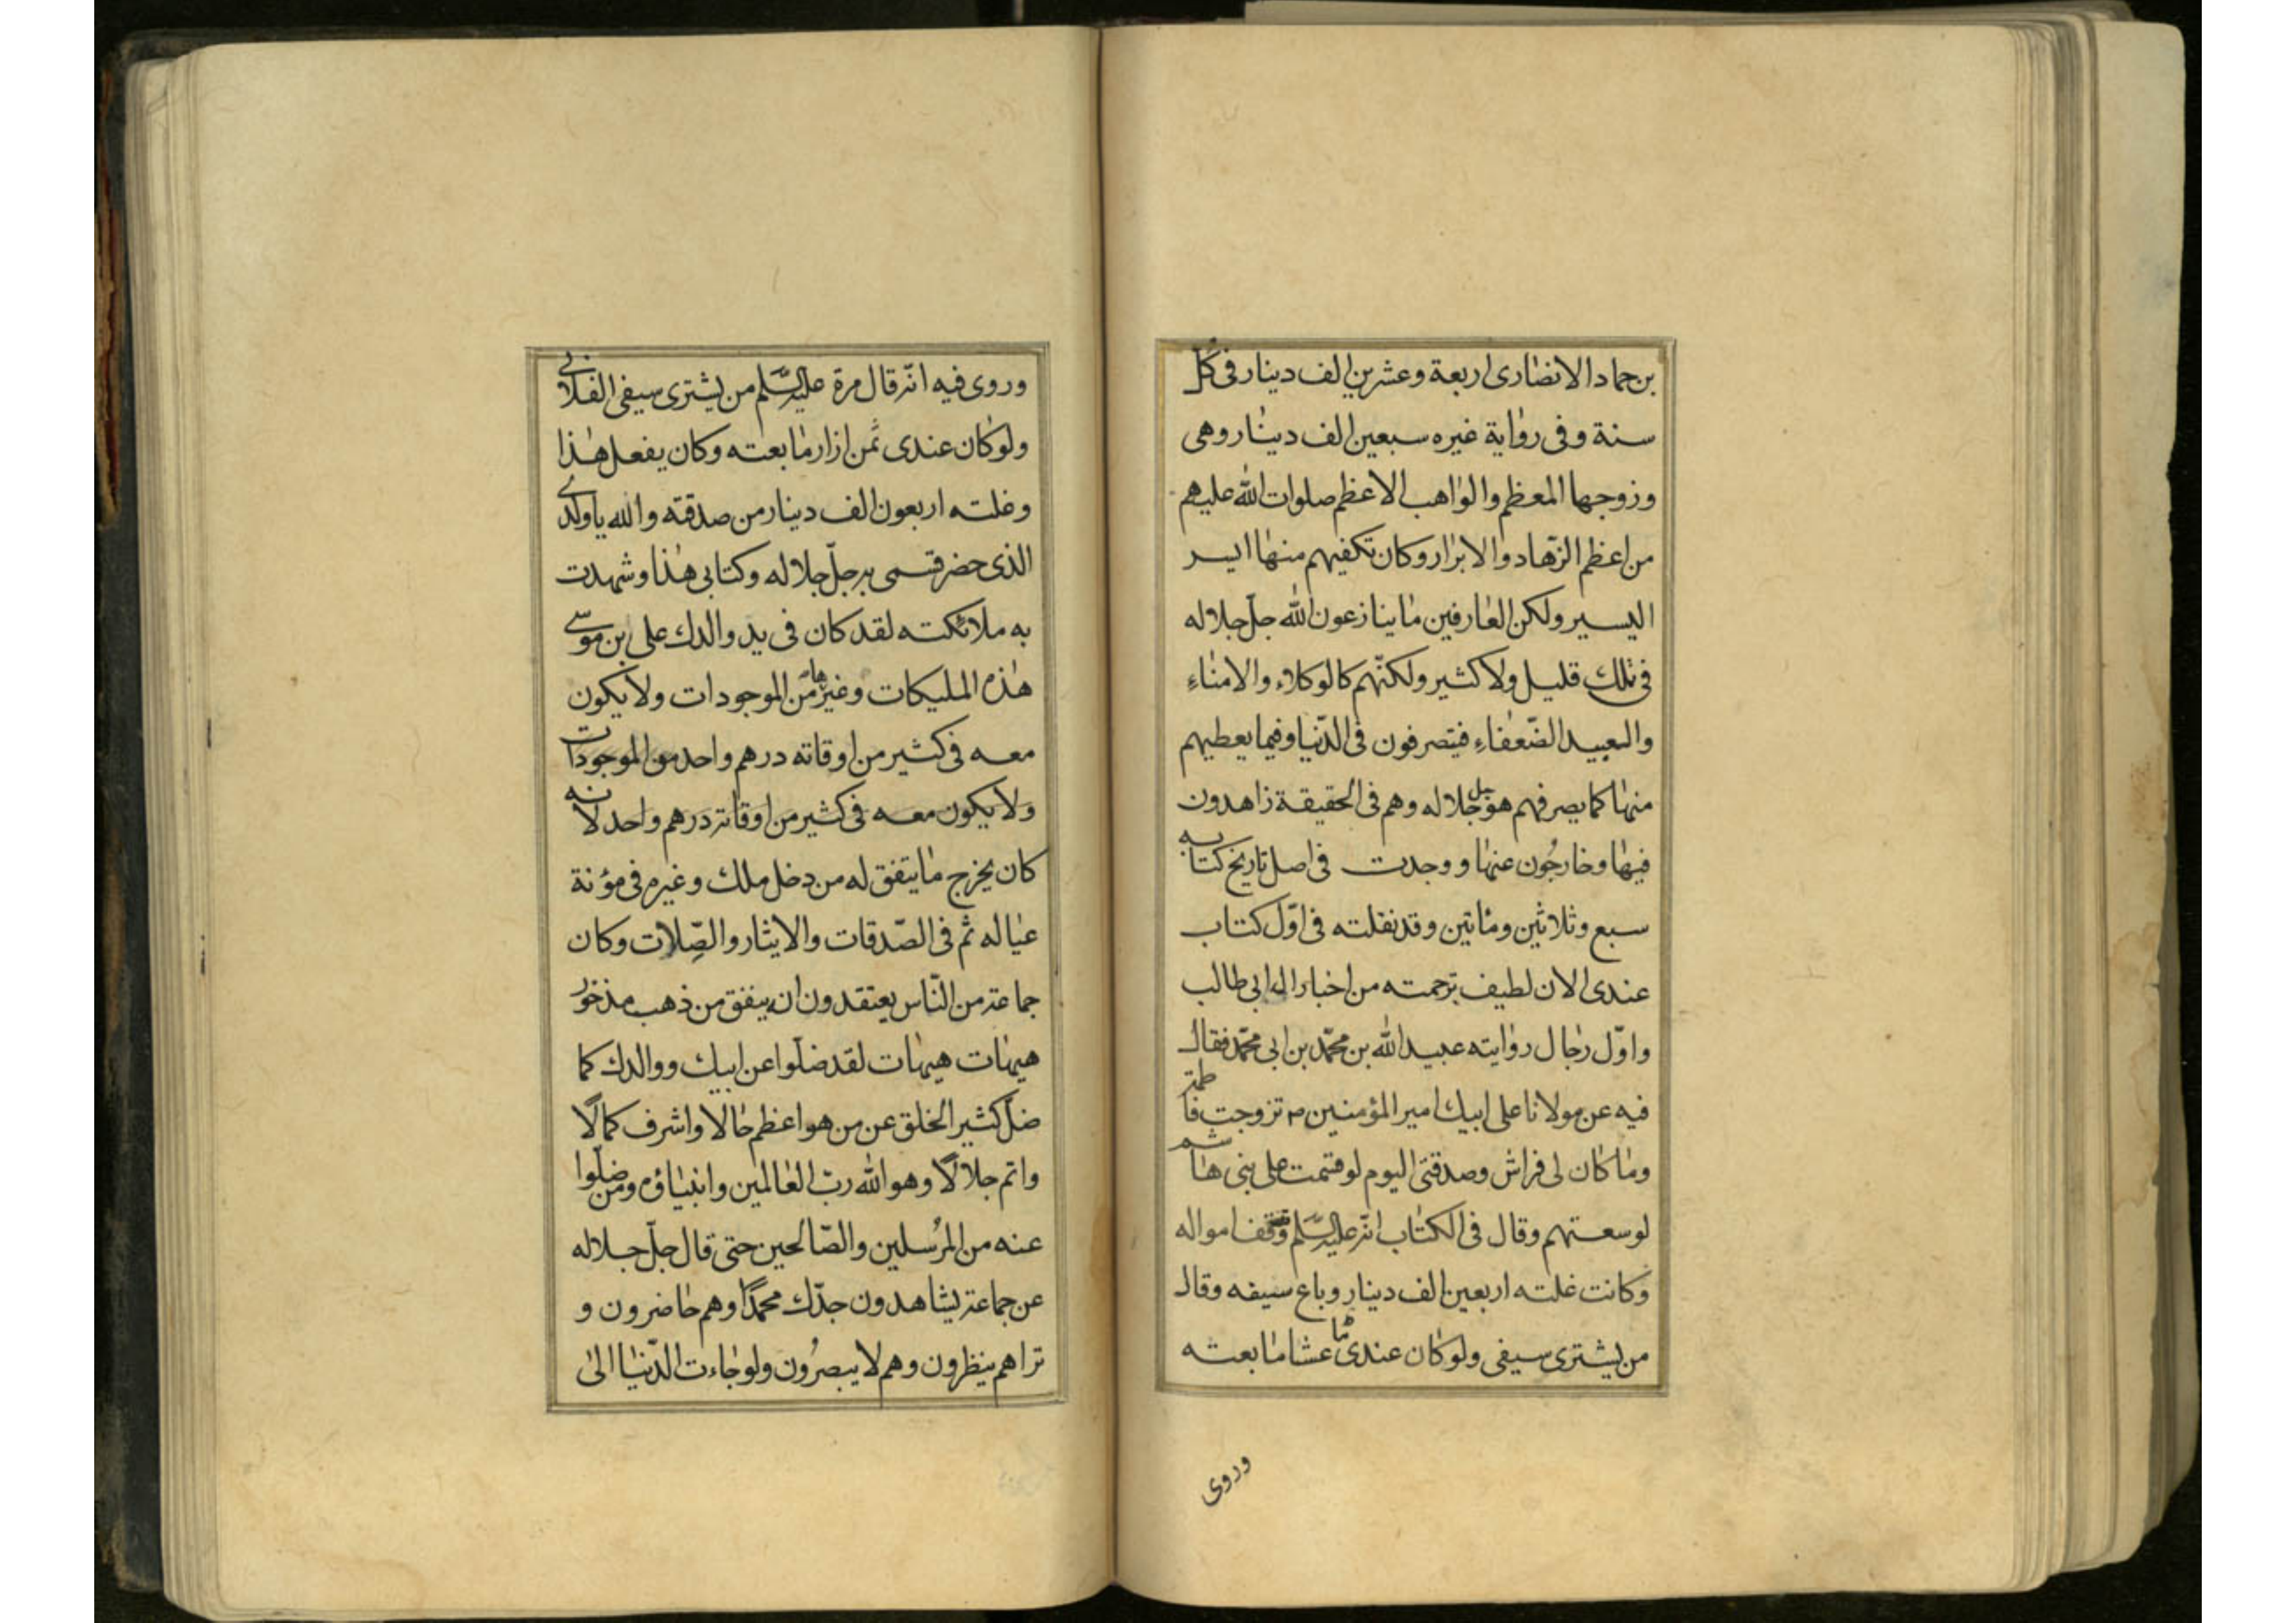 بن حماد الانصاری اربعة وعشرین الف دینار فی کل
سنة وفی روایة غیره سبعین الف دینار وهی
وزوجها المعظم والواهب الاعظم صلوات الله علیهم
من اعظم الزهاد والابرار وکان تکفیهم منها ایسر
الیسیر ولکن العارفین ما ینازعون الله جل جلاله
فی تلك قلیل ولا کثیر ولکنهم کالوکلاء والامناء
والعبید الضعفاء فیتصرفون فی الدنیا وفیما یعطیهم
منها کما یصرفهم هو جل جلاله وهم فی الحقیقة زاهدون
فیها وخارجون عنها ووجدت فی اصل تاریخ کتابه
سبع وثلاثین ومأتین وقد نقلته فی اول کتاب
عندی الان لطیف ترجمته من اخبار ال ابی طالب
واول رجال روایته عبید الله بن محمد بن ابی محمد فقال
فیه عن مولانا علی ابیك امیر المؤمنین م تزوجت فاطمة
وما کان لی فراش وصدقتی الیوم لو قسمت علی بنی هاشم
لوسعتهم وقال فی الکتاب انه علیه السلم وقف امواله
وکانت غلته اربعین الف دینار وباع سیفه وقال
من یشتری سیفی ولو کان عندی عشا ما بعته
وروی
وروی فیه انه قال مرة علیه السلم من یشتری سیفی الفلانی
ولو کان عندی ثمن ازار ما بعته وکان یفعل هذا
وغلته اربعون الف دینار من صدقته والله یا ولدی
الذی حضر قسمی به جل جلاله وکتابی هذا وشهدت
به ملائکته لقد کان فی ید والدك علی بن موسی
هذه الملیکات وغیرها من الموجودات ولا یکون
معه فی کثیر من اوقاته درهم واحد من الموجودات
ولا یکون معه فی کثیر من اوقاته درهم واحد لانه
کان یخرج ما یتفق له من دخل ملك وغیره فی مؤنة
عیاله ثم فی الصدقات والایثار والصلات وکان
جماعة من الناس یعتقدون انه ینفق من ذهب مذخور
هیهات هیهات لقد ضلوا عن ابیك ووالدك کما
ضل کثیر الخلق عن من هو اعظم حالا واشرف کمالا
واتم جلالا وهو الله رب العالمین وانبیاؤه ومن ضلوا
عنه من المرسلین والصالحین حتی قال جل جلاله
عن جماعة یشاهدون جدك محمدا وهم حاضرون و
تراهم ینظرون وهم لا یبصرون ولو جاءت الدنیا الی